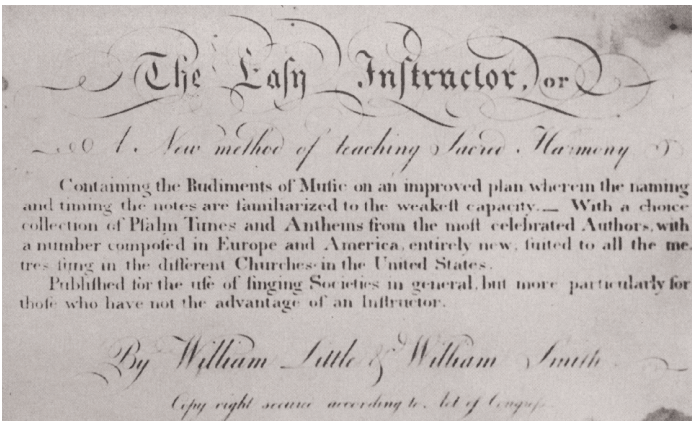 The Eaſy Inſtructor, or
A New method of teaching Sacred Harmony
Containing the Rudiments of Muſic on an improved plan wherein the naming
and timing the notes are familiarized to the weakeſt capacity. — With a choice
collection of Pſalm Tunes and Anthems from the moſt celebrated Authors, with
a number compoſed in Europe and America, entirely new, ſuited to all the me-
tres ſung in the different Churches in the United States.
Publiſhed for the uſe of ſinging Societies in general, but more particularly for
thoſe who have not the advantage of an Inſtructor.
By William Little & William Smith
Copy right secured according to Act of Congreſs.